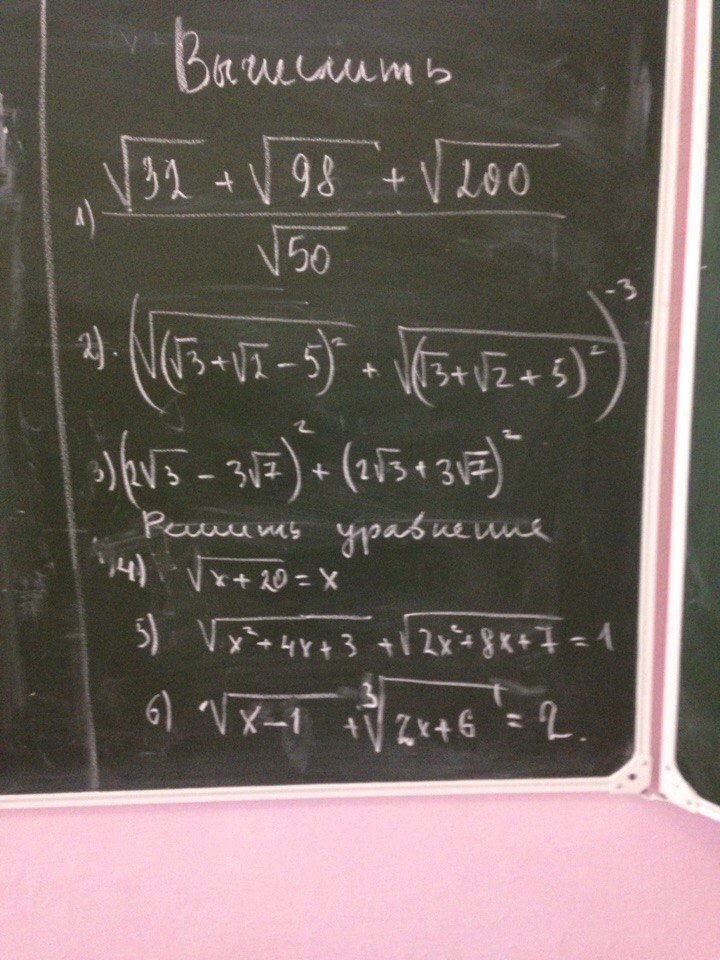 Вычислить
1) (√32 + √98 + √200) / √50
2). (√(√3+√2-5)² + √(√3+√2+5)²)⁻³
3) (2√3 - 3√7)² + (2√3+3√7)²
Решить уравнение
4) √(x+20) = x
5) √(x²+4x+3) + √(2x²+8x+7) = 1
6) √(x-1) + ³√(2x+6) = 2.